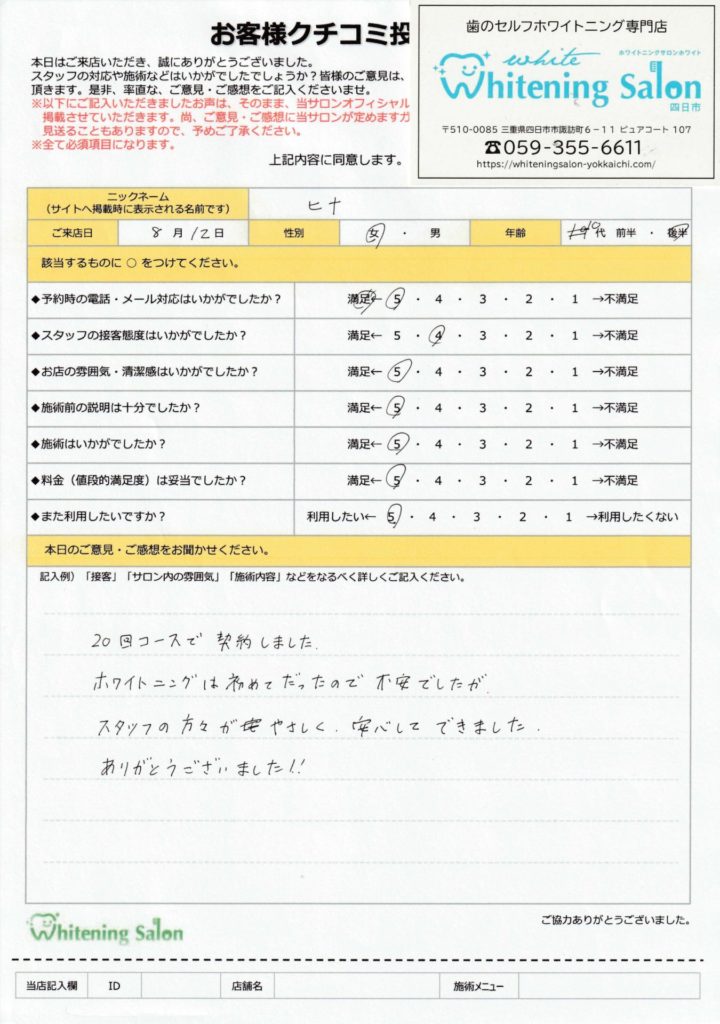 お客様クチコミ投
本日はご来店いただき、誠にありがとうございました。
スタッフの対応や施術などはいかがでしたでしょうか？皆様のご意見は、
頂きます。是非、率直な、ご意見・ご感想をご記入くださいませ。
※以下にご記入いただきましたお声は、そのまま、当サロンオフィシャル
掲載させていただきます。尚、ご意見・ご感想に当サロンが定めますガ
見送ることもありますので、予めご了承ください。
※全て必須項目になります。
上記内容に同意します。
歯のセルフホワイトニング専門店
white
ホワイトニングサロンホワイト
Whitening Salon
四日市
〒510-0085 三重県四日市市諏訪町6－11 ピュアコート 107
☎059-355-6611
https://whiteningsalon-yokkaichi.com/
ニックネーム
（サイトへ掲載時に表示される名前です）
ヒナ
ご来店日 8 月 12 日 性別 女 ・ 男 年齢 10 代 前半 ・ 後半
該当するものに ○ をつけてください。
◆予約時の電話・メール対応はいかがでしたか？ 満足← 5 ・ 4 ・ 3 ・ 2 ・ 1 →不満足
◆スタッフの接客態度はいかがでしたか？ 満足← 5 ・ 4 ・ 3 ・ 2 ・ 1 →不満足
◆お店の雰囲気・清潔感はいかがでしたか？ 満足← 5 ・ 4 ・ 3 ・ 2 ・ 1 →不満足
◆施術前の説明は十分でしたか？ 満足← 5 ・ 4 ・ 3 ・ 2 ・ 1 →不満足
◆施術はいかがでしたか？ 満足← 5 ・ 4 ・ 3 ・ 2 ・ 1 →不満足
◆料金（値段的満足度）は妥当でしたか？ 満足← 5 ・ 4 ・ 3 ・ 2 ・ 1 →不満足
◆また利用したいですか？ 利用したい← 5 ・ 4 ・ 3 ・ 2 ・ 1 →利用したくない
本日のご意見・ご感想をお聞かせください。
記入例）「接客」「サロン内の雰囲気」「施術内容」などをなるべく詳しくご記入ください。
20回コースで 契約しました.
ホワイトニングは初めてだったので 不安でしたが
スタッフの方々が やさしく. 安心して できました.
ありがとうございました!!
Whitening Salon
ご協力ありがとうございました。
当店記入欄 ID 店舗名 施術メニュー